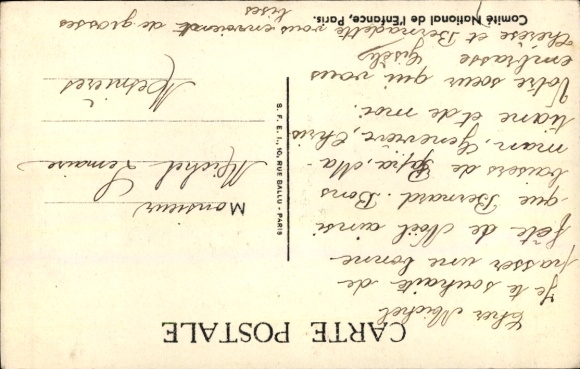 CARTE POSTALE
Cher Michel
Je te souhaite de
passer une bonne
fête de Noël ainsi
que Bernard. Bons
baisers de Papa, Ma-
man, Geneviève, Chris
tiane et de moi.
Votre sœur qui vous
embrasse
Gisèle
Thérèse et Bernadette vous envoient de grosses
bises
Comité National de l'Enfance, Paris.
S. F. E. I., 10, RUE BALLU - PARIS
Monsieur
Michel Lemaire
Mesnières